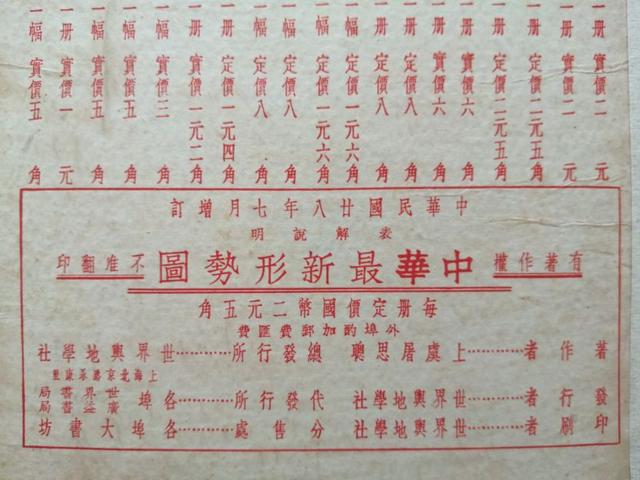 一册 實價二 元
一册 實價二 元
一册 定價二元五角
一册 定價二元五角
一册 實價六 角
一册 實價六 角
一册 定價八 角
一册 定價八 角
一幅 定價一元六角
一幅 定價一元六角
一幅 定價八 角
一幅 定價八 角
一册 定價一元四角
一册 實價一元二角
一幅 實價三 角
一幅 實價五 角
一幅 實價五 角
一册 實價一 元
一幅 實價五 角
中華民國廿八年七月增訂
表解說明
有著作權 中華最新形勢圖 不准翻印
每册定價國幣二元五角
外埠酌加郵費匯費
著作者………上虞屠思聰 總發行所………世界輿地學社
上海北京路承康里
發行者………世界輿地學社 代發行所………各埠 世界書局 廣益書局
印刷者………世界輿地學社 分售處………各埠大書坊